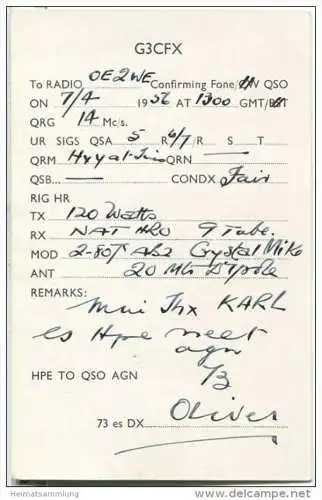 G3CFX
To RADIO OE2WE Confirming Fone/ QSO
ON 7/4 1956 AT 1300 GMT/
QRG 14 Mc/s.
UR SIGS QSA 5 R 6/7 R S T
QRM QRN —
QSB — CONDX Fair
RIG HR
TX 120 Watts
RX NAT HRO 9 Tube.
MOD 2-807 AB2 Crystal Mike
ANT 20 Dipole
REMARKS:
Mni Thx KARL
es Hpe meet
agn
HPE TO QSO AGN 73
73 es DX Oliver
Heimatsammlung
oldthing.de